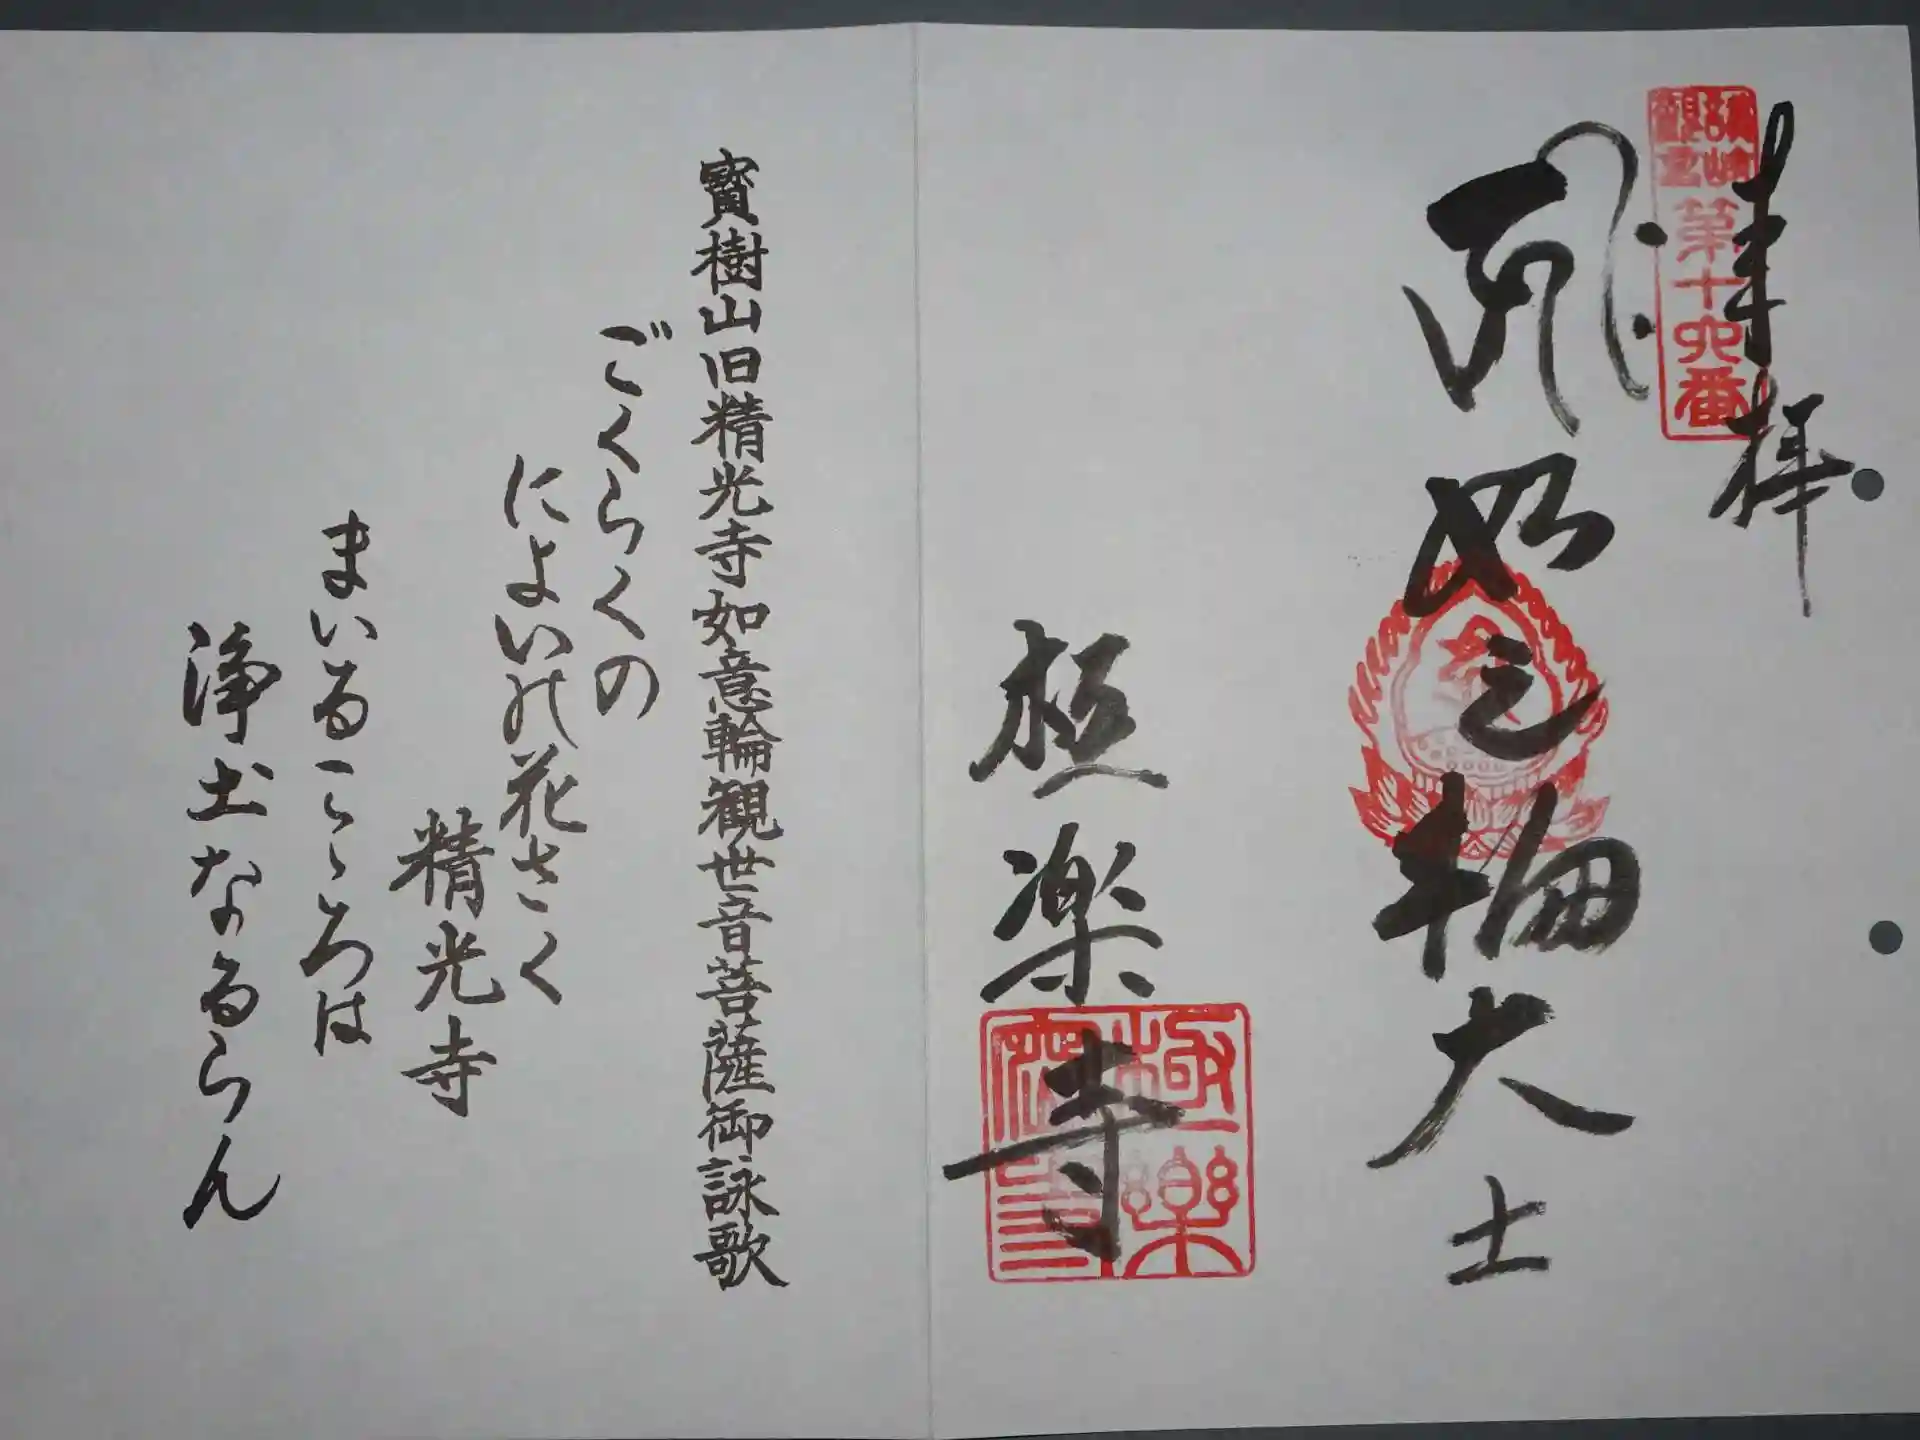 奉拝
讃岐
観音
第十六番
如意輪大士
極楽寺
極楽
寺印
寳樹山旧精光寺如意輪観世音菩薩御詠歌
ごくらくの
によいの花さく
精光寺
まいるこゝろは
浄土なるらん